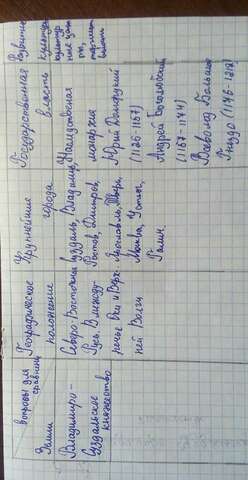 вопросы для
сравнения
Земли
Географическое
положение
Крупнейшие
города
Государственная
власть
Развитие
культуры
Владимиро-
Суздальское
княжество
Северо-Восточная
Русь. В между-
речье Оки и Верх-
ней Волги
Суздаль, Владимир,
Ростов, Дмитров,
Ярославль, Тверь,
Москва, Устюг,
Галич.
Наследственная
монархия
Юрий Долгорукий
(1125-1157)
Андрей Боголюбский
(1157-1174)
Всеволод Большое
Гнездо (1176-1212)